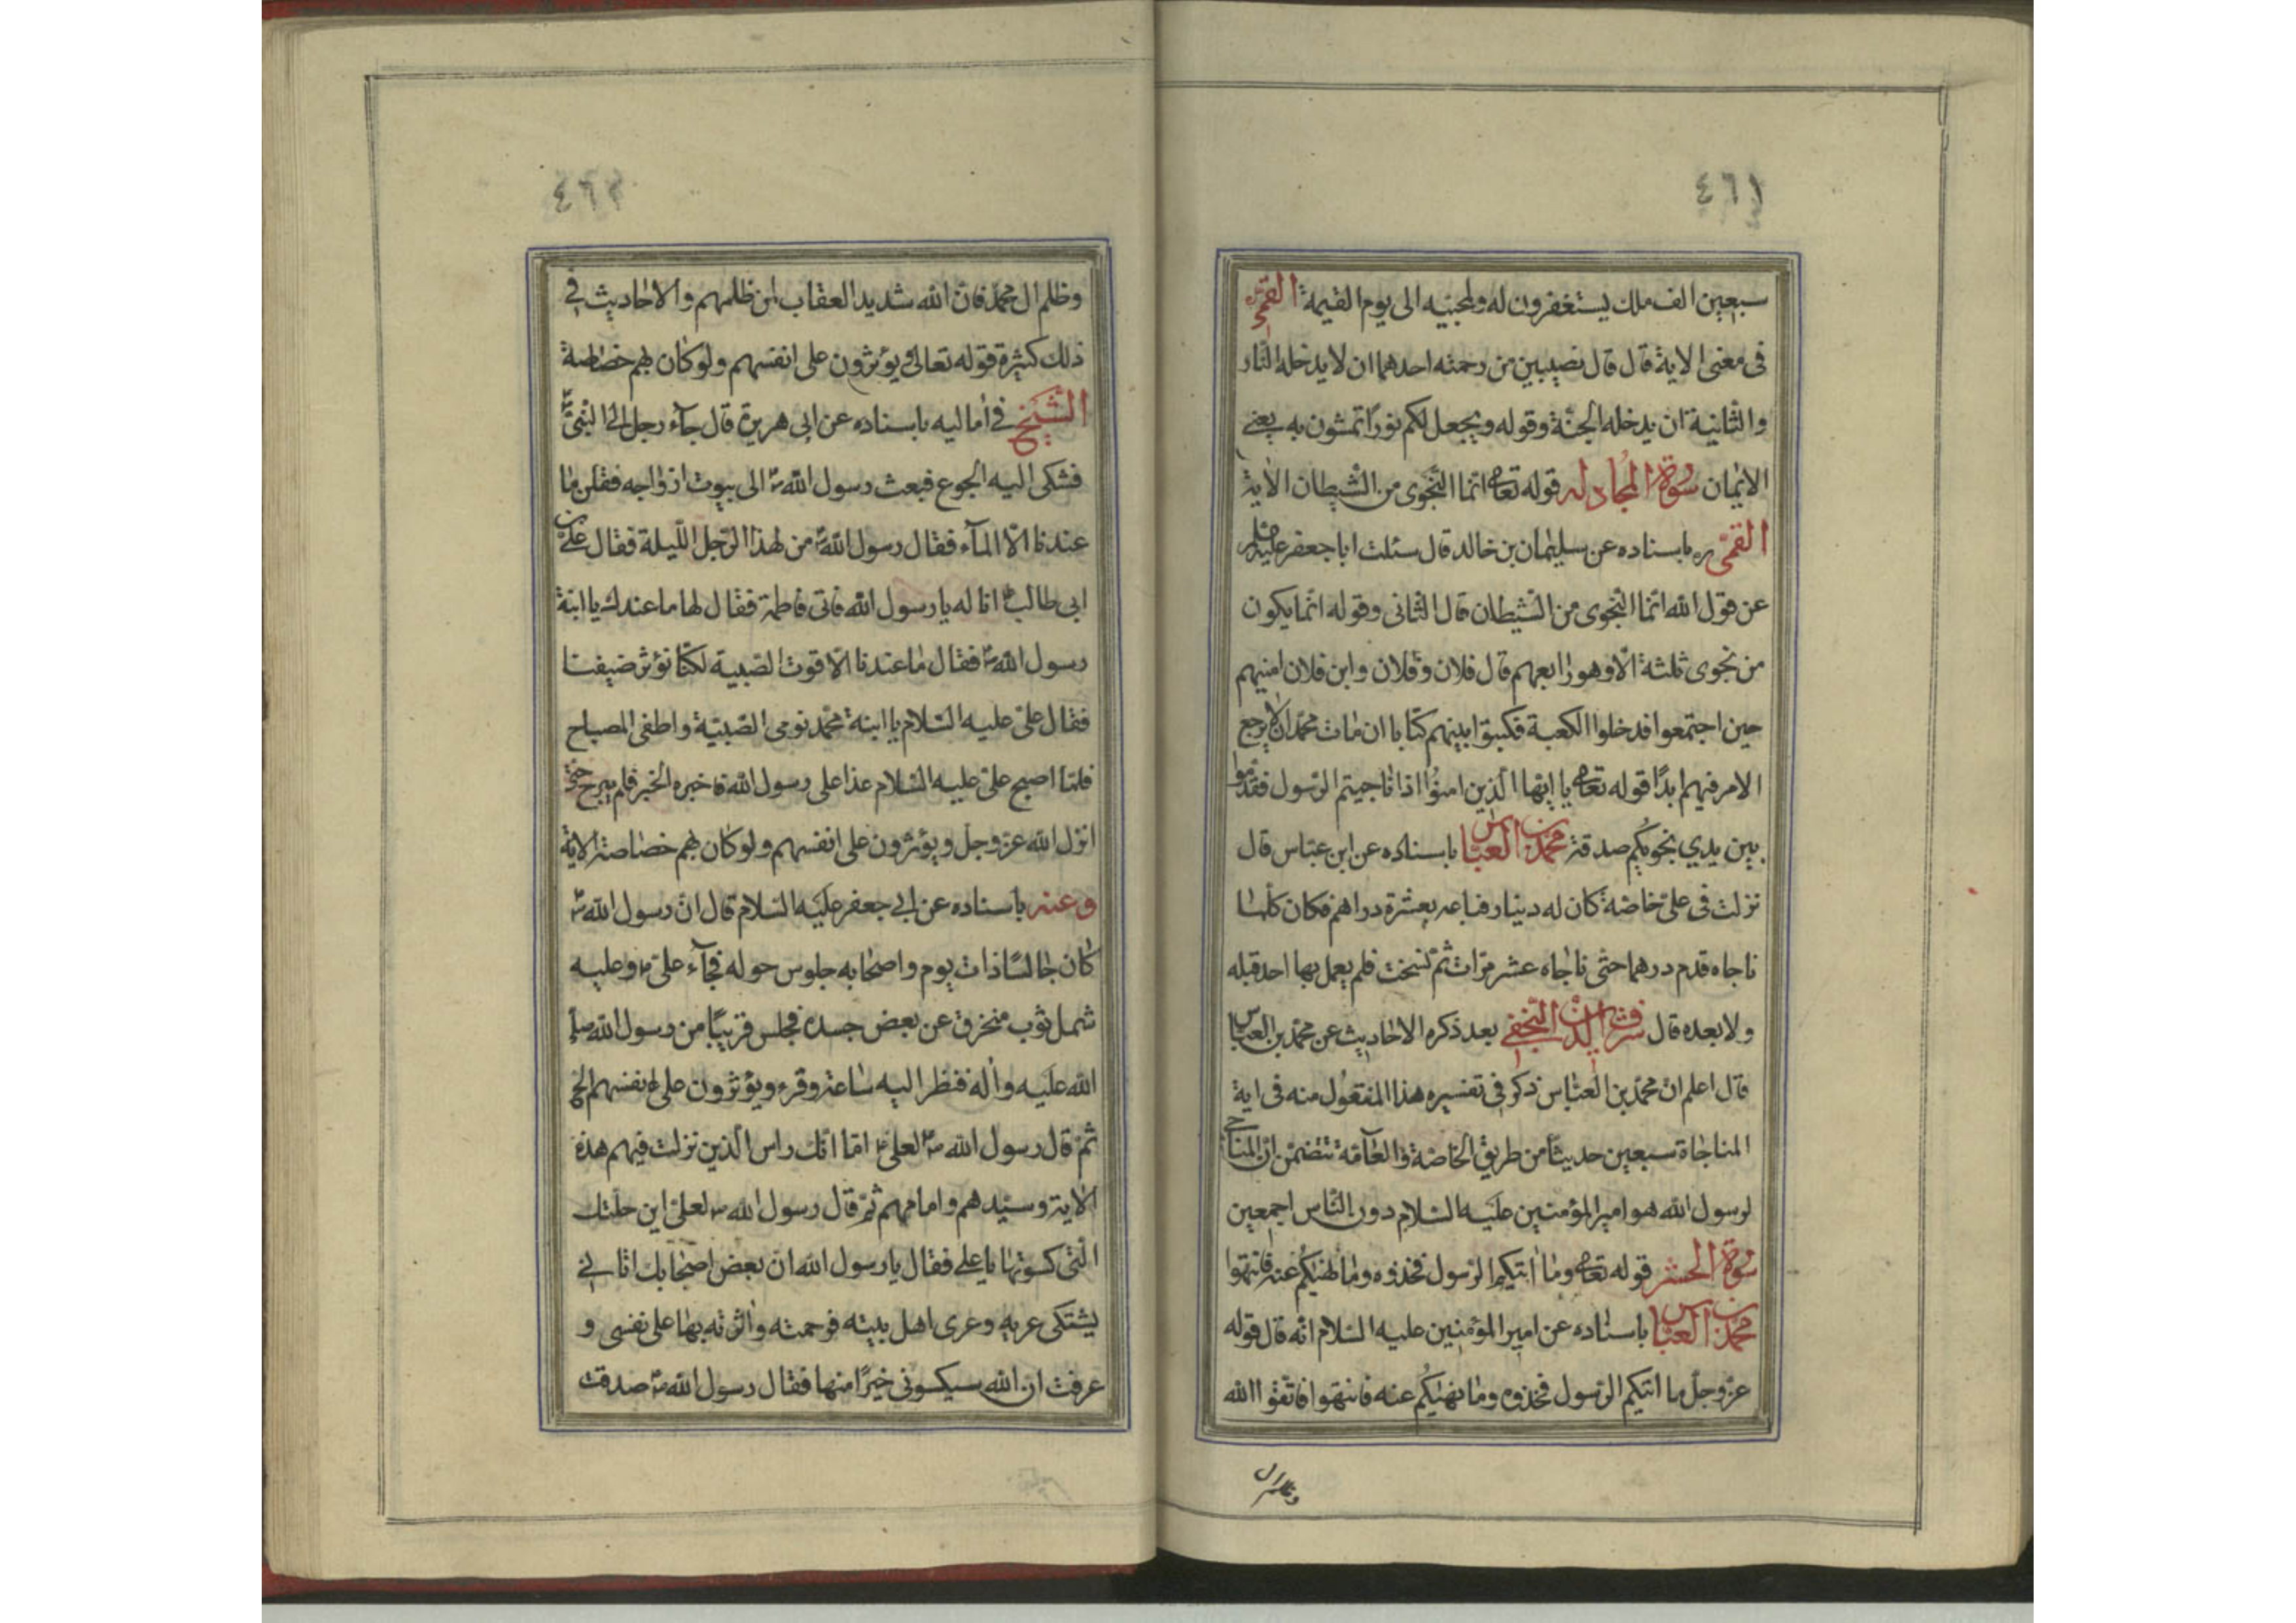 ٤٦١
سبعين الف ملك يستغفرون له ولمحبيه الى يوم القيمة القمى
فى معنى الاية قال قال نصيبين من رحمته احدهما ان لا يدخله النار
والثانية ان يدخله الجنة وقوله ويجعل لكم نورًا تمشون به يعنى
الايمان سورة المجادله قوله تعالى انما النجوى من الشيطان الاية
القمى ره باسناده عن سليمان بن خالد قال سئلت ابا جعفر
عن قول الله انما النجوى من الشيطان قال الثانى وقوله انما يكون
من نجوى ثلثة الا وهو رابعهم قال فلان وفلان وابن فلان امينهم
حين اجتمعوا فدخلوا الكعبة فكتبوا بينهم كتابا ان مات محمد ان لا يرجع
الامر فيهم ابدًا قوله تعالى يا ايها الذين امنوا اذا ناجيتم الرسول فقدموا
بين يدي نجويكم صدقة محمد بن العباس باسناده عن ابن عباس قال
نزلت فى على خاصة كان له دينار فباعه بعشرة دراهم فكان كلما
ناجاه قدم درهما حتى ناجاه عشر مرات ثم نسخت فلم يعمل بها احد قبله
ولا بعده قال شرف الدين النجفى بعد ذكره الاحاديث عن محمد بن العباس
قال اعلم ان محمد بن العباس ذكر فى تفسيره هذا المنقول منه فى اية
المناجاة سبعين حديثًا من طريق الخاصة والعامة تتضمن ان المناجى
لرسول الله هو امير المؤمنين عليه السلام دون الناس اجمعين
سورة الحشر قوله تعالى وما اتيكم الرسول فخذوه وما نهيكم عنه فانتهوا
محمد بن العباس باسناده عن امير المؤمنين عليه السلام انه قال قوله
عز وجل ما اتيكم الرسول فخذوه وما نهيكم عنه فانتهوا فاتقوا الله
وظلم ال
٤٦٢
وظلم ال محمد فان الله شديد العقاب لمن ظلمهم والاحاديث فى
ذلك كثيرة قوله تعالى ويؤثرون على انفسهم ولو كان بهم خصاصة
الشيخ فى اماليه باسناده عن ابى هريرة قال جاء رجل الى النبى
فشكى اليه الجوع فبعث رسول الله ص الى بيوت ازواجه فقلن ما
عندنا الا الماء فقال رسول الله ص من لهذا الرجل الليلة فقال على بن
ابى طالب ع انا له يا رسول الله فاتى فاطمة فقال لها ما عندك يا ابنة
رسول الله ص فقال ما عندنا الا قوت الصبية لكنا نؤثر ضيفنا
فقال على عليه السلام يا ابنة محمد نومى الصبية واطفى المصباح
فلما اصبح على عليه السلام غذا على رسول الله فاخبره الخبر فلم يبرح حتى
انزل الله عز وجل ويؤثرون على انفسهم ولو كان بهم خصاصة الاية
وعنه باسناده عن ابى جعفر عليه السلام قال ان رسول الله ص
كان جالسًا ذات يوم واصحابه جلوس حوله فجاء على ع وعليه
شمل ثوب منخرق عن بعض جسده فجلس قريبًا من رسول الله صلى
الله عليه واله فنظر اليه ساعة وقرء ويؤثرون على انفسهم الخ
ثم قال رسول الله ص لعلى ع اما انك راس الذين نزلت فيهم هذه
الاية وسيدهم وامامهم ثم قال رسول الله ص لعلى اين حلتك
التى كسوتها يا على فقال يا رسول الله ان بعض اصحابك اتانى
يشتكى عريه وعرى اهل بيته فرحمته واثرته بها على نفسى و
عرفت ان الله سيكسونى خيرًا منها فقال رسول الله ص صدقت